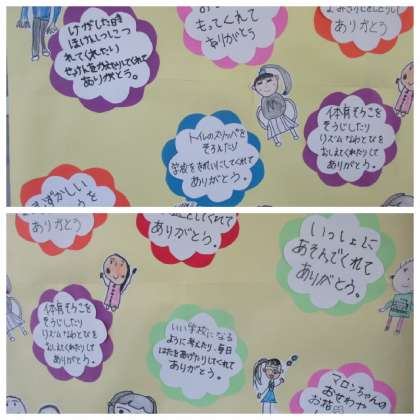 けがした時
ほけんしつにつ
れてくれたり
せったいをかえたりしてくれて
ありがとう。
もってくれて
ありがとう
ありがとう
トイレのスリッパを
そろえたり
学校をきれいにしてくれて
ありがとう。
体育そうこを
そうじしたり
リズムなわとびを
おしえてくれたりして
ありがとう。
ずかしい
を
ありがとう
としてくれて
ありがとう。
いっしょに
あそんでくれて
ありがとう。
ありがとう
体育そうこを
そうじしたり
リズムなわとびを
おしえてくれたりして
ありがとう。
いい学校になる
ように考えたり、毎日
はたをあげたりしてくれて
ありがとう。
マロンちゃんの
おせわや
お花